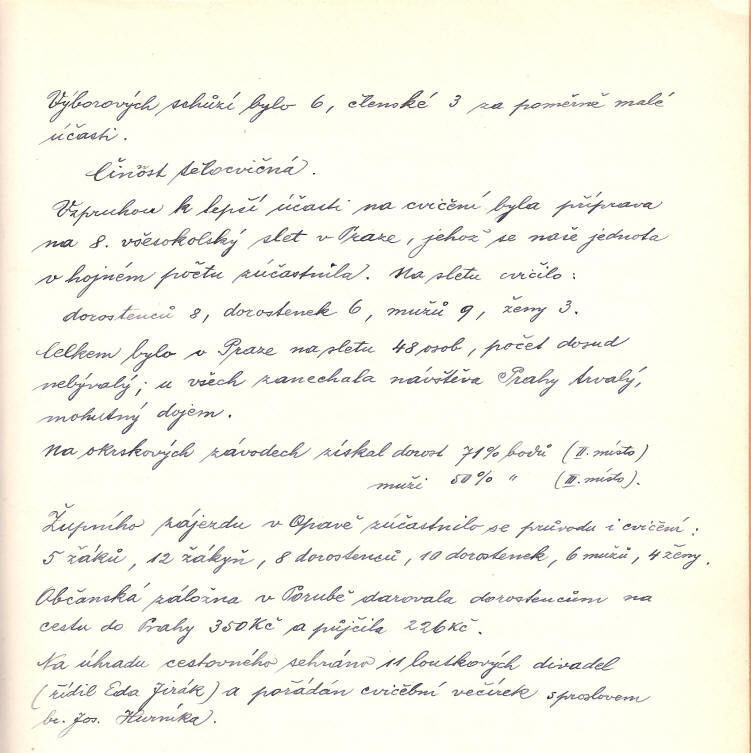 Výborových schůzí bylo 6, členské 3 za poměrně malé
účasti.
Činost tělocvičná.
Vzpruhou k lepší účasti na cvičení byla příprava
na 8. všesokolský slet v Praze, jehož se naše jednota
v hojném počtu zúčastnila. Na sletu cvičilo:
dorostenců 8, dorostenek 6, mužů 9, ženy 3.
Celkem bylo v Praze na sletu 48 osob, počet dosud
nebývalý; u všech zanechala návštěva Prahy trvalý,
mohutný dojem.
Na okrskových závodech získal dorost 71% bodů (II. místo)
muži 50% " (III. místo).
Župního zájezdu v Opavě zúčastnilo se průvodu i cvičení:
5 žáků, 12 žákyň, 8 dorostenců, 10 dorostenek, 6 mužů, 4 ženy.
Občanská záložna v Porubě darovala dorostencům na
cestu do Prahy 350 Kč a půjčila 226 Kč.
Na úhradu cestovného sehráno 11 loutkových divadel
(řídil Eda Jirák) a pořádán cvičební večírek s proslovem
br. Jos. Hurníka.